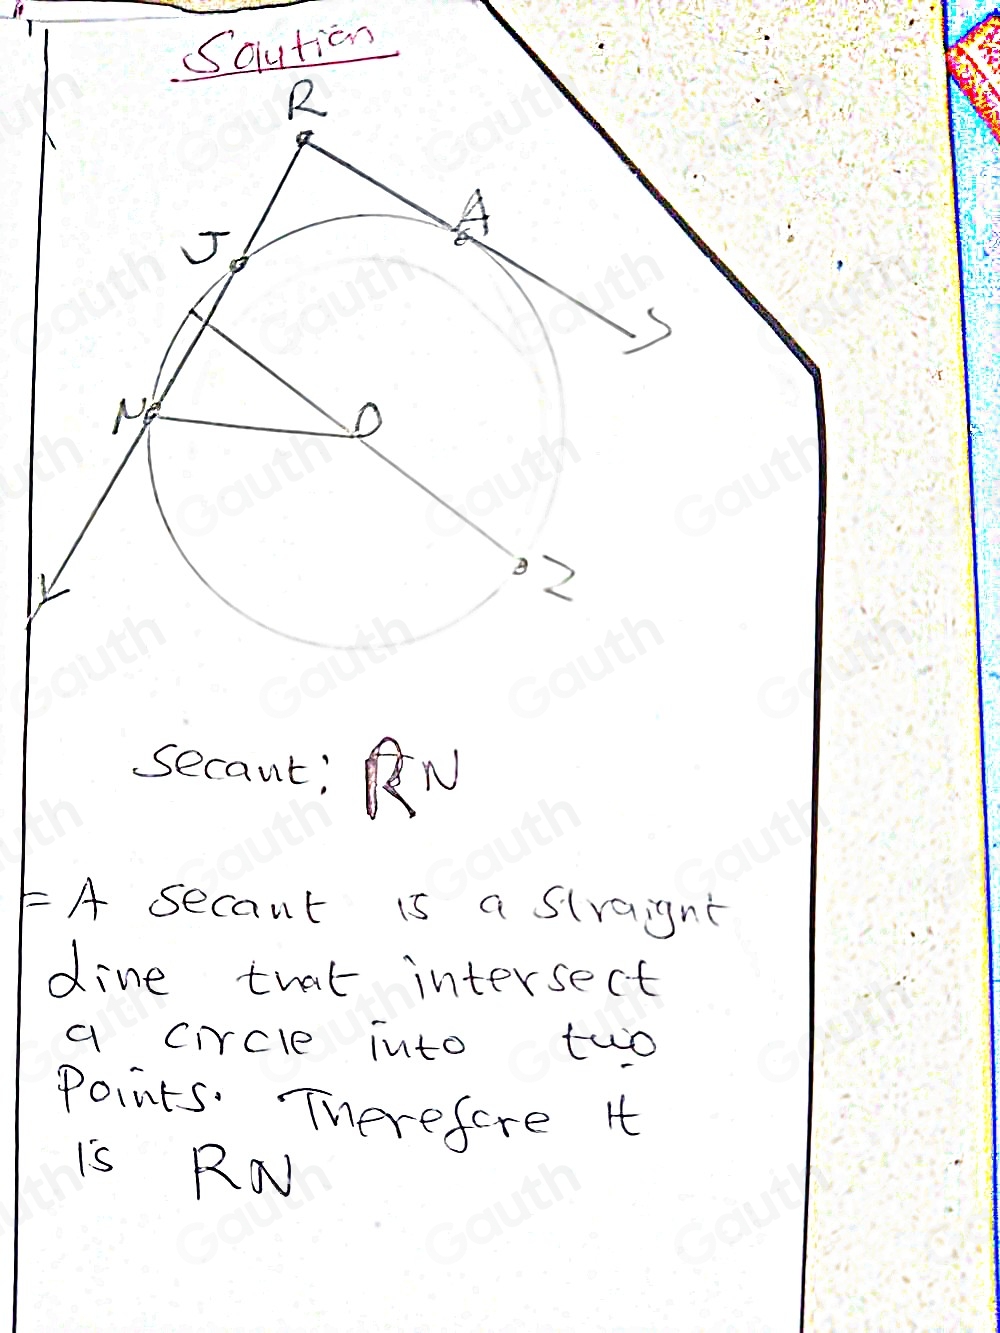 Solution
R
A
J
S
N
O
Z
L
Secant: RN
= A secant is a straignt
line that intersect
a circle into two
Points. Therefore it
is RN
Gauth